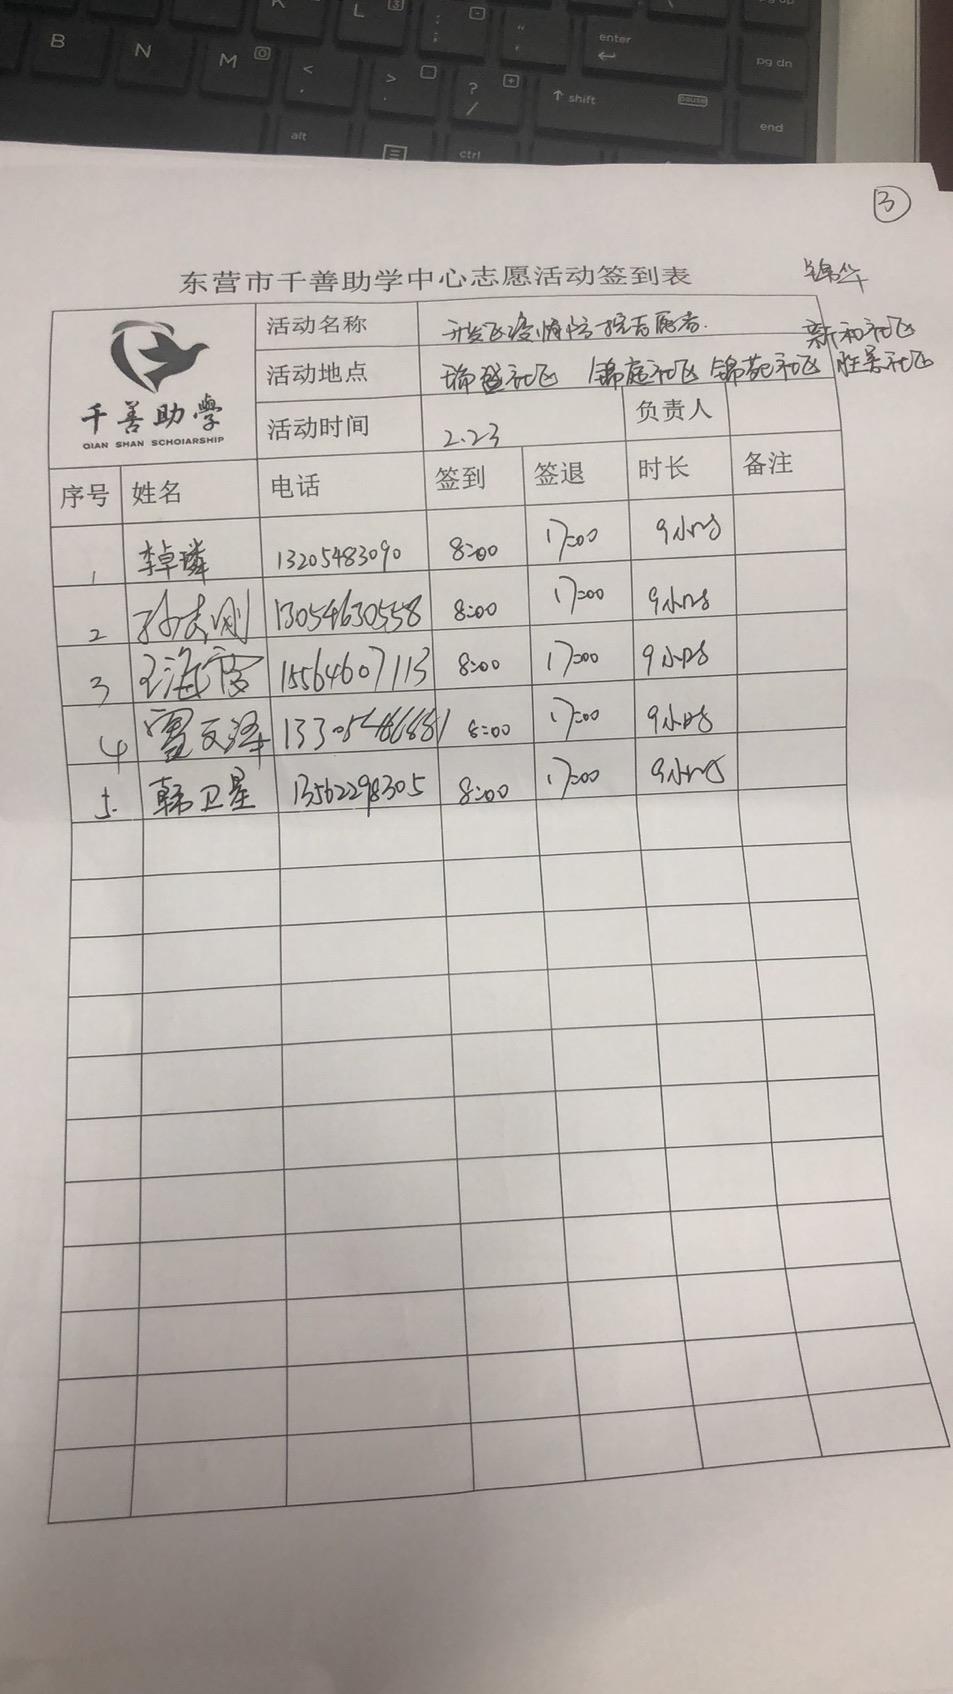 B N M < , > . ? / ↑ shift pause enter pg dn end
alt ctrl
K L : ;
③
东营市千善助学中心志愿活动签到表
锦华
千善助学
QIAN SHAN SCHOIARSHIP
活动名称 开发区疫情防控志愿者.
新和社区
活动地点 社区 锦庭社区 锦苑社区 社区
活动时间 2.23 负责人
序号 姓名 电话 签到 签退 时长 备注
1 李卓璘 13205483090 8:00 17:00 9小时
2 孙志刚 13054630558 8:00 17:00 9小时
3 王海霞 15564607113 8:00 17:00 9小时
4 8:00 17:00 9小时
5. 韩卫星 13562298305 8:00 17:00 9小时